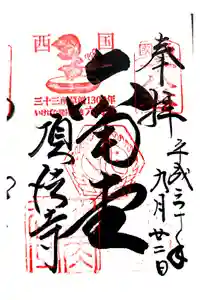 奉拝
平成三十年
九月廿二日
六角堂
頂法寺
西国
三十三所草創1300年